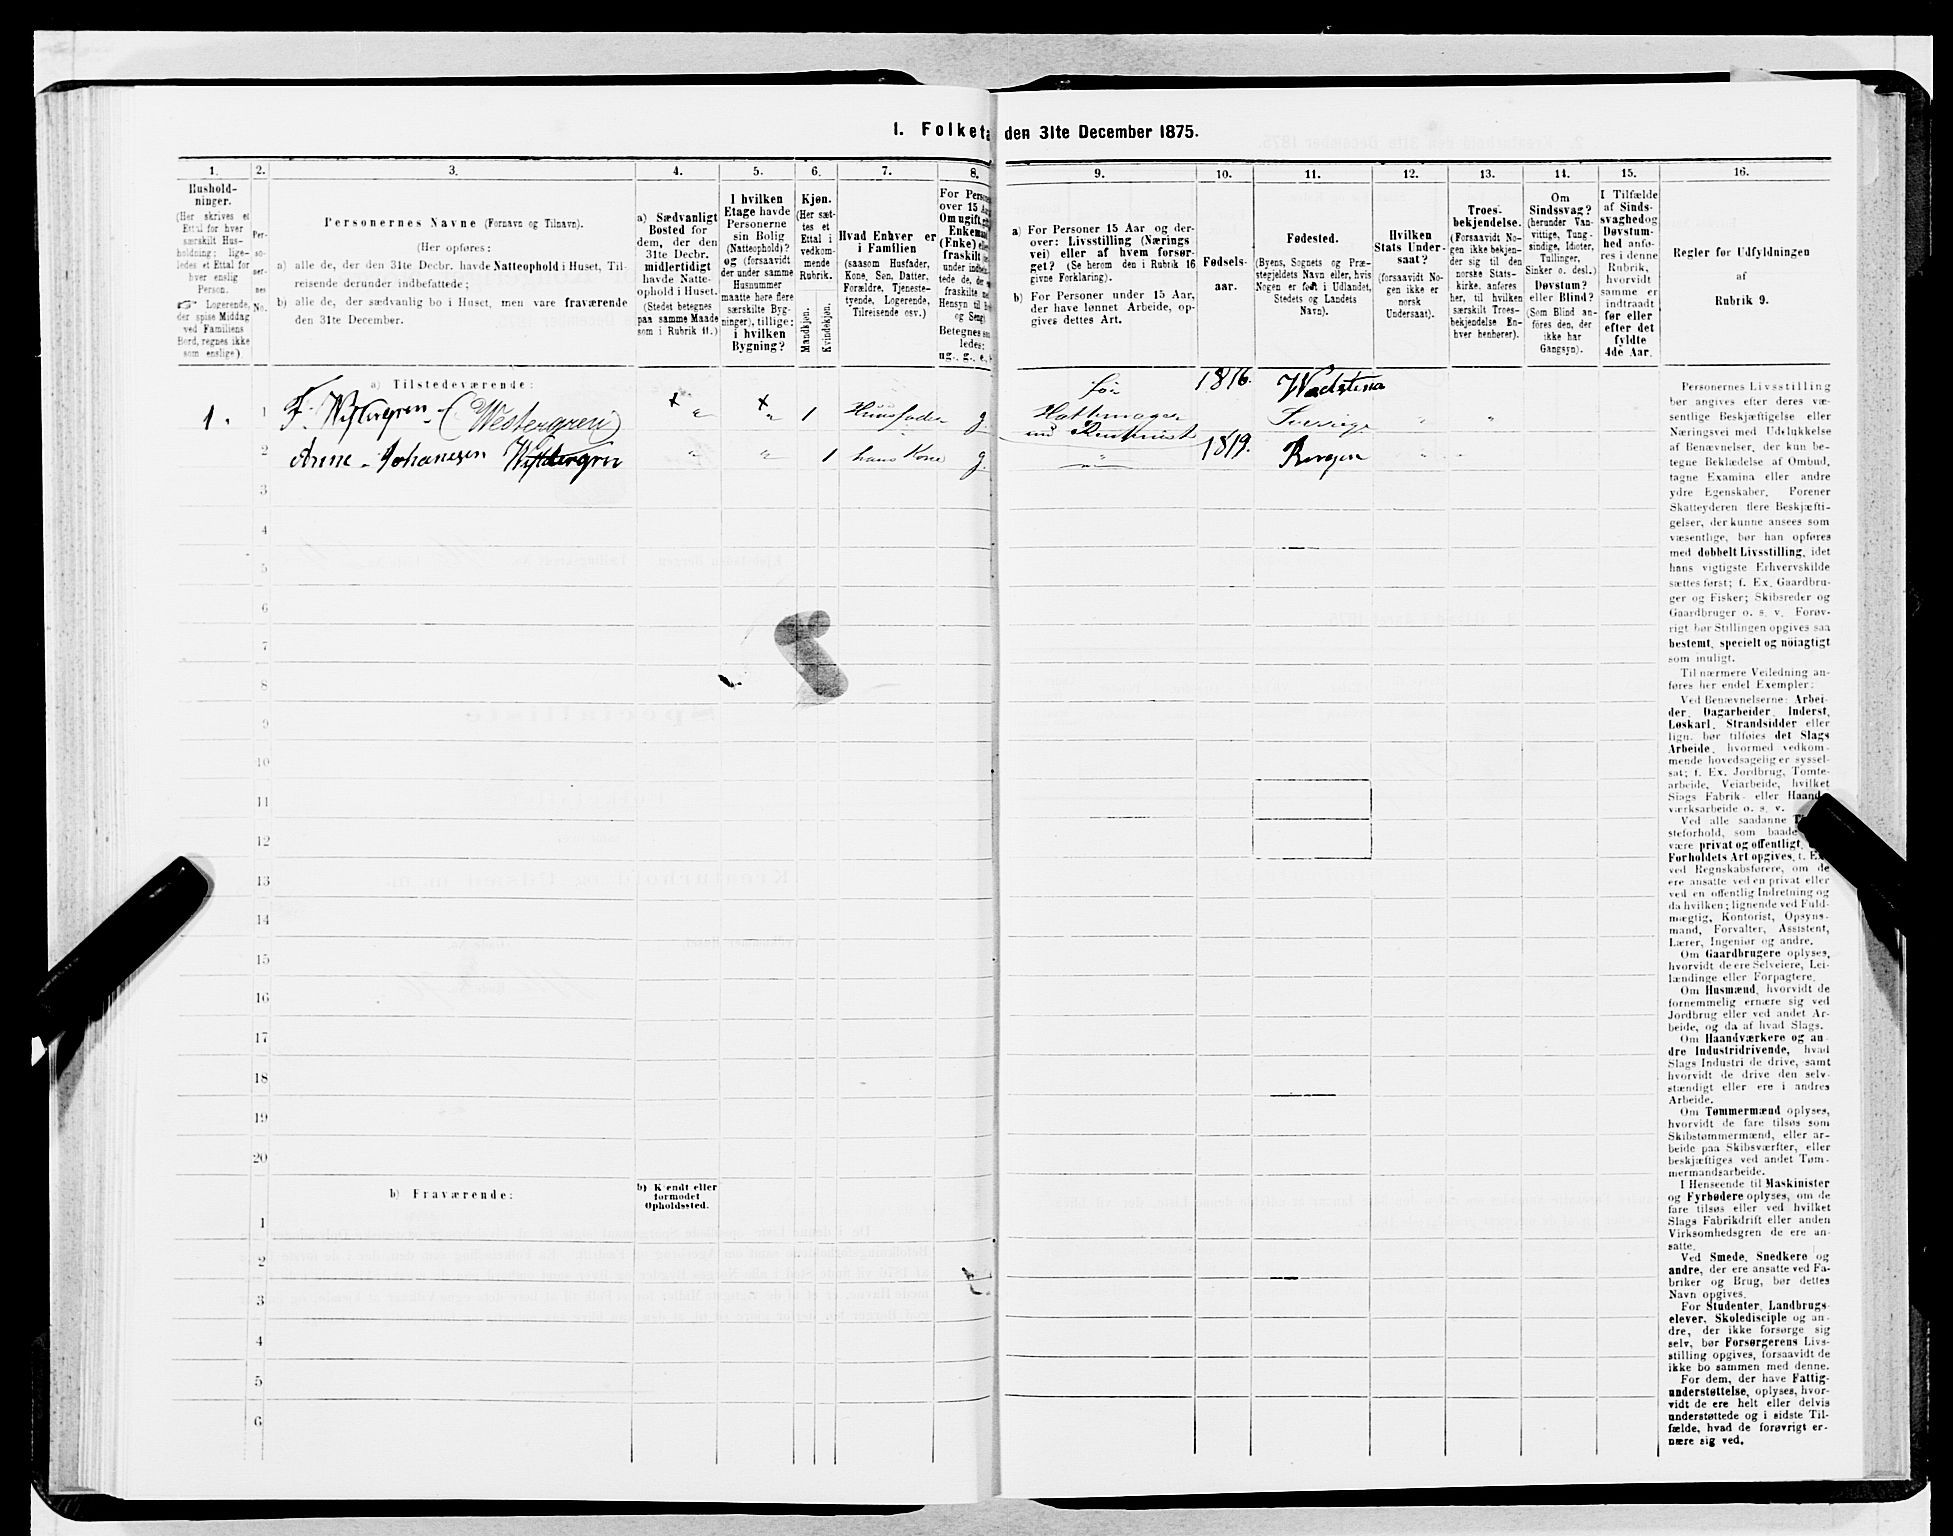 1. Folketæ den 31te December 1875.
1.
Hushold-
ninger.
(Her skrives et
Ettal for hver
særskilt Hus-
holdning; lige-
ledes et Ettal for
hver enslig
Person.
Logerende,
der spise Middag
ved Familiens
Bord, regnes ikke
som enslige)
2.
Per-
so-
ner-
nes
No.
3.
Personernes Navne (Fornavn og Tilnavn).
(Her opføres:
a) alle de, der den 31te Decbr. havde Natteophold i Huset, Til-
reisende derunder indbefattede;
b) alle de, der sædvanlig bo i Huset, men vare fraværende
den 31te December.
4.
a) Sædvanligt
Bosted for
dem, der den
31te Decbr.
midlertidigt
havde Natte-
ophold i Huset.
(Stedet betegnes
paa samme Maade
som i Rubrik 11.)
5.
I hvilken
Etage havde
Personerne
sin Bolig
(Natteophold)?
og (forsaavidt
der under samme
Husnummer
maatte høre flere
særskilte Byg-
ninger), tillige:
i hvilken
Bygning?
6.
Kjøn.
(Her sæt-
tes et
Ettal i
vedkom-
mende
Rubrik.
Mandkjøn.
Kvindekjøn.
7.
Hvad Enhver er
i Familien
(saasom Husfader,
Kone, Søn, Datter,
Forældre, Tjeneste-
tyende, Logerende,
Tilreisende osv.)
8.
For Person
over 15 Aa
Om ugift, g
Enkema
(Enke) elle
fraskilt
under indbe
tede de, der
fraskilte
Hensyn til B
og Seng
Betegnes saa
ledes:
ug., g., e.,
9.
a) For Personer 15 Aar og der-
over: Livsstilling (Nærings
vei) eller af hvem forsør-
get? (Se herom den i Rubrik 16
givne Forklaring).
b) For Personer under 15 Aar,
der have lønnet Arbeide, op-
gives dettes Art.
10.
Fødsels-
aar.
11.
Fødested.
(Byens, Sognets og Præ-
stegjeldets Navn eller, hvis
Nogen er født i Udlandet,
Stedets og Landets
Navn).
12.
Hvilken
Stats Under-
saat?
(forsaavidt No-
gen ikke er
norsk
Undersaat).
13.
Troes-
bekjendelse.
(Forsaavidt No-
gen ikke bekjen-
der sig til den
norske Stats-
kirke, anføres
her, til hvilken
særskilt Troes-
bekjendelse En-
hver henhører).
14.
Om
Sindssvag?
(herunder Van-
vittige, Tung-
sindige, Idioter,
Tullinger,
Sinker o. desl.)
Døvstum?
eller Blind?
(Som Blind an-
føres den, der
ikke har
Gangsyn).
15.
I Tilfælde
af Sinds-
svaghed og
Døvstum-
hed anfø-
res i denne
Rubrik,
hvorvidt
samme er
indtraadt
før eller
efter det
fyldte
4de Aar.
16.
Regler for Udfyldningen
af
Rubrik 9.
a) Tilstedeværende:
1. 1 F. Westergren - (Westergren) " " 1 Huusfader g før
Hattemager
nu Rentenist 1816. Wadstena
Sverrige " "
2 Anne Johanesen Westergren " " 1 hans Kone g. " 1819. Bergen "
3
4
5
6
7
8
9
10
11
12
13
14
15
16
17
18
19
20
b) Fraværende:
b) Kjendt eller
formodet
Opholdssted.
1
2
3
4
5
6
Personernes Livsstilling
bør angives efter deres væ-
sentlige Beskjæftigelse eller
Næringsvei med Udelukkelse
af Benævnelser, der kun be-
tegne Beklædelse af Ombud,
tagne Examina eller andre
ydre Egenskaber. Forener
Skatteyderen flere Beskjæfti-
gelser, der kunne ansees som
væsentlige, bør han opføres
med dobbelt Livsstilling, idet
hans vigtigste Erhvervskilde
sættes først; f. Ex. Gaardbru-
ger og Fisker; Skibsreder og
Gaardbruger o. s. v. Forøv-
rigt bør Stillingen opgives saa
bestemt, specielt og nöiagtigt
som muligt.
Til nærmere Veiledning an-
føres her endel Exempler:
Ved Benævnelserne: Arbei-
der, Dagarbeider, Inderst,
Løskarl, Strandsidder eller
lign. bør tilføies det Slags
Arbeide, hvormed vedkom-
mende hovedsagelig er syssel-
sat; f. Ex. Jordbrug, Tomte-
arbeide, Veiarbeide, hvilket
Slags Fabrik- eller Haand-
værksarbeide o. s. v.
Ved alle saadanne
steforhold, som baade
være privat og offentligt,
Forholdets Art opgives, f. Ex.
ved Regnskabsførere, om de
ere ansatte ved en privat eller
ved en offentlig Indretning og
da hvilken; lignende ved Fuld-
mægtig, Kontorist, Opsyns-
mand, Forvalter, Assistent,
Lærer, Ingeniør og andre.
Om Gaardbrugere oplyses,
hvorvidt de ere Selveiere, Lei-
lændinge eller Forpagtere.
Om Husmænd, hvorvidt de
fornemmelig ernære sig ved
Jordbrug eller ved andet Ar-
beide, og da af hvad Slags.
Om Haandværkere og an
dre Industridrivende, hvad
Slags Industri de drive, samt
hvorvidt de drive den selv-
stændigt eller ere i andres
Arbeide.
Om Tømmermænd oplyses,
hvorvidt de fare tilsøs som
Skibstømmermænd, eller ar-
beide paa Skibsværfter, eller
beskjæftiges ved andet Tøm-
mermandsarbeide.
I Henseende til Maskinister
og Fyrbødere oplyses, om de
fare tilsøs eller ved hvilket
Slags Fabrikdrift eller anden
Virksomhedsgren de ere an-
satte.
Ved Smede, Snedkere og
andre, der ere ansatte ved Fa-
briker og Brug, bør dettes
Navn opgives.
For Studenter, Landbrugs-
elever, Skoledisciple og an-
dre, der ikke forsørge sig
selv, bør Forsørgerens Livs-
stilling opgives, forsaavidt de
ikke bo sammen med denne.
For dem, der have Fattig-
understøttelse, oplyses, hvor-
vidt de ere helt eller delvis
understøttede og i sidste Til-
fælde, hvad de forøvrigt er-
nære sig ved.